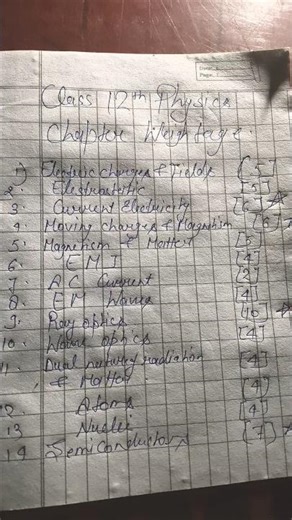 Date
Page
Class 12th Physics
Chapter Weightage.
1) Electric charges & Fields [5]
2. Electrostatic [5]
3. Current Electricity [6]
4. Moving charges & Magnetism [6]
5. Magnetism & Matter [5]
6. E M I [4]
7. A C Current [2]
8. E M Waves [4]
9. Ray optics [10]
10. Wave optics [4]
11. Dual nature radiation
& Matter [4]
12. Atoms [4]
13 Nuclei [4]
14 Semiconductor [7]